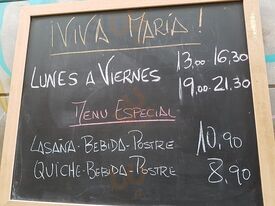 ¡VIVA MARÍA!
LUNES A VIERNES 13,00·16,30
19,00·21,30
MENU ESPECIAL
LASAÑA·BEBIDA·POSTRE 10,90
QUICHE·BEBIDA·POSTRE 8,90